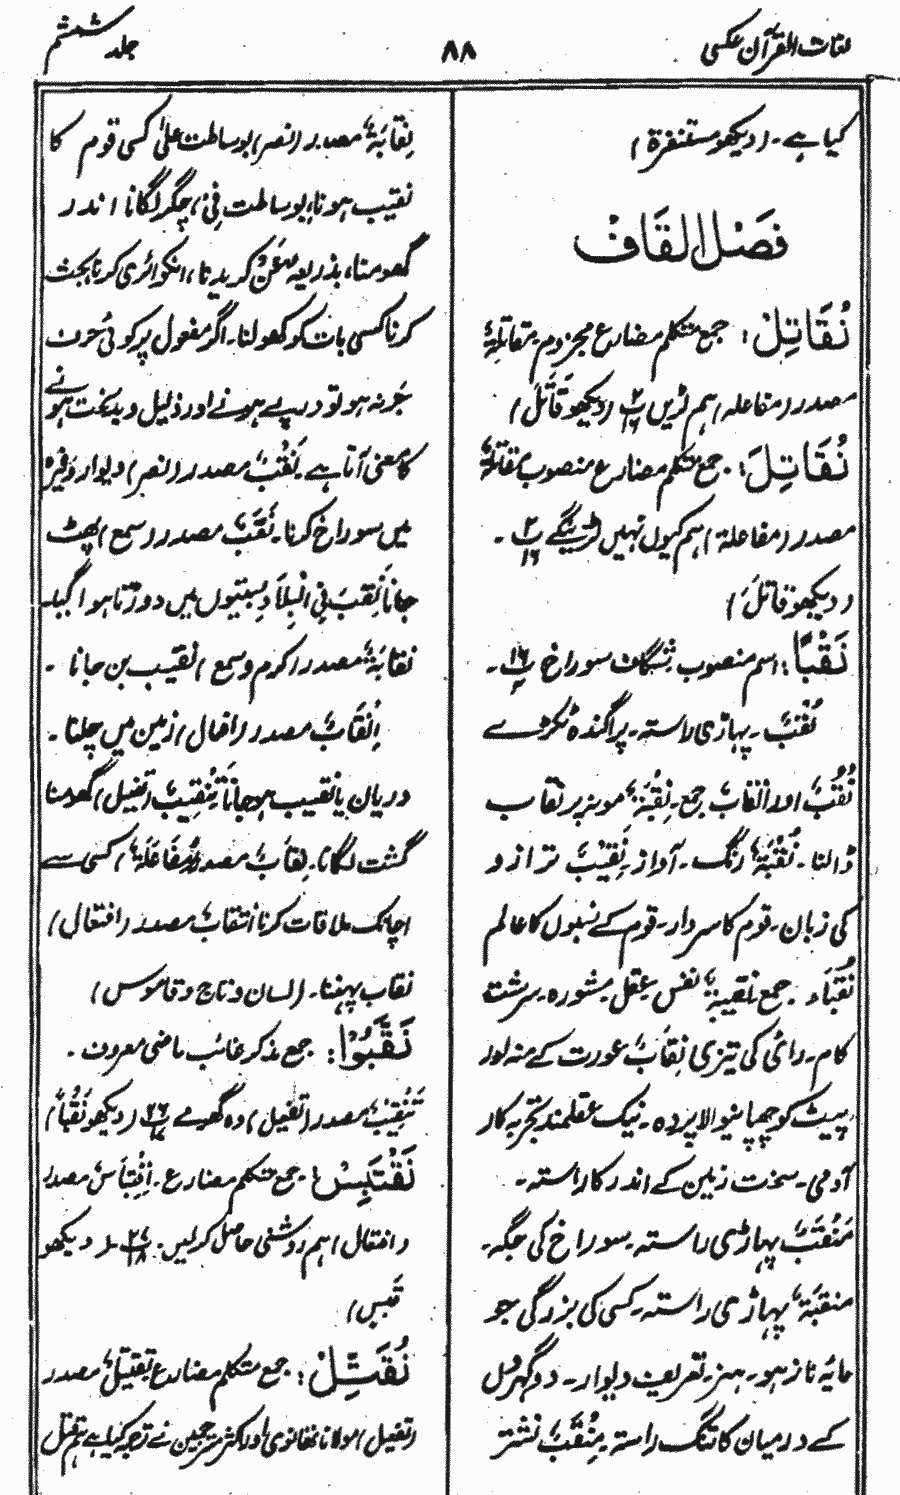 لغات القرآن عکسی
۸۸
جلد ششم
کیا ہے۔ (دیکھو مستنفرۃ)
فَصْلُ الْقَافْ
نُقَاتِلْ: جمع متکلم مضارع مجزوم مقاتلۃٌ
مصدر (مفاعلہ) ہم لڑیں (دیکھو قَاتَلَ)
نُقَاتِلَ: جمع متکلم مضارع منصوب مقاتلۃٌ
مصدر (مفاعلۃ) ہم کیوں نہیں لڑینگے پ ۲/۱۶ ۔
(دیکھو قاتَلَ)
نَقْبًا: اسم منصوب شگاف سوراخ پ ۱۶/۲ ۔
نُقْبٌ ۔ پہاڑی راستہ۔ پراگندہ ٹکڑے
نُقُبٌ اور انقابٌ جمع۔ نِقْبَۃٌ موہنہ پر نقاب
ڈالنا ۔ نُقْبَۃٌ رنگ ۔ آواز۔ نَقِیْبٌ ترازو
کی زبان۔ قوم کا سردار۔ قوم کے نسبوں کا عالم
نُقَبَاء ۔ جمع نقیبۃٌ نفس عقل مشورہ۔ سرشت
کام۔ رائی کی تیزی نِقَابٌ عورت کے منہ اور
پیٹ کو چھپانیوالا پردہ۔ نیک عقلمند تجربہ کار
آدمی۔ سخت زمین کے اندر کا راستہ۔
مَنْقَبٌ پہاڑی راستہ۔ سوراخ کی جگہ۔
منقبۃٌ پہاڑی راستہ۔ کسی کی بزرگی جو
مایۂ ناز ہو۔ ہنر۔ تعریف دیوار۔ دو گھروں
کے درمیان کا تنگ راستہ۔ مِنْقَبٌ نشتر
نِقَابَۃٌ مصدر (نصر) بوساطت عَلیٰ کسی قوم کا
نقیب ہونا، بوساطت فِیْ، چکر لگانا اندر
گھومنا، بذریعہ عَنْ کریدنا، انکوائری کرنا بحث
کرنا کسی بات کو کھولنا۔ اگر مفعول پر کوئی حرف
جَر نہ ہو تو درپے ہونے اور ذلیل و بدبخت ہونے
کا معنی آتا ہے۔ نَقْبٌ مصدر (نصر) دیوار وغیرہ
میں سوراخ کرنا۔ نَقَبٌ مصدر (سمع) پھٹ
جانا نَقَبَ فِی الْبِلَادِ بستیوں میں دوڑتا ہوا گیا۔
نقابۃٌ مصدر (کرم و سمع) نقیب بن جانا ۔
اِنْقَابٌ مصدر (افعال) زمین میں چلنا ۔
دربان یا نقیب ہو جانا تَنْقِیْبٌ (تفعیل) گھومنا
گشت لگانا۔ نِقَابٌ مصدر (مُفَاعَلَۃ) کسی سے
اچانک ملاقات کرنا انتقابٌ مصدر (افتعال)
نقاب پہننا۔ (لسان و تاج و قاموس)
نَقَّبُوْا: جمع مذکر غائب ماضی معروف ۔
تَنْقِیْبٌ مصدر (تفعیل) وہ گھومے پ ۲۶/۱۷ (دیکھو نَقْباً)
نَقْتَبِسْ: جمع متکلم مضارع۔ اِقْتِبَاسٌ مصدر
(افتعال) ہم روشنی حاصل کر لیں۔ پ ۲۷/۱۸۔ (دیکھو
قَبَسٍ)
نُقَتِّلُ: جمع متکلم مضارع تَقْتِیْلٌ مصدر
(تفعیل) مولانا تھانوی اور اکثر مترجمین نے ترجمہ کیا ہے ہم قتل